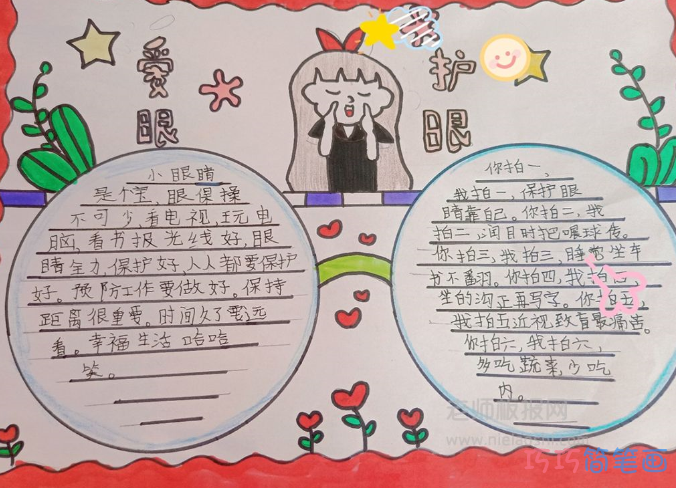 爱眼
护眼
小眼睛
是个宝,眼保操
不可少,看电视,玩电
脑,看书报光线好,眼
睛全力保护好,人人都要保护
好。预防工作要做好。保持
距离很重要。时间久了要远
看。幸福生活哈哈
笑。
你拍一,
我拍一,保护眼
睛靠自己。你拍二,我
拍二,闲目时把嘿球传。
你拍三,我拍三,睡觉坐车
书不翻。你拍四,我拍四
坐的沟正再写字。你拍五,
我拍五近视致盲最痛苦。
你拍六,我拍六,
多吃蔬菜,少吃
肉。
老师板报网
巧巧简笔画